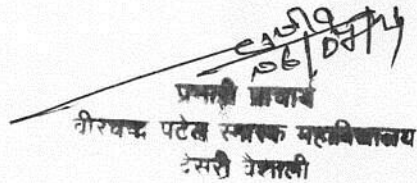 प्रभारी प्राचार्य
वीरचन्द्र पटेल स्मारक महाविद्यालय
देसरी वैशाली